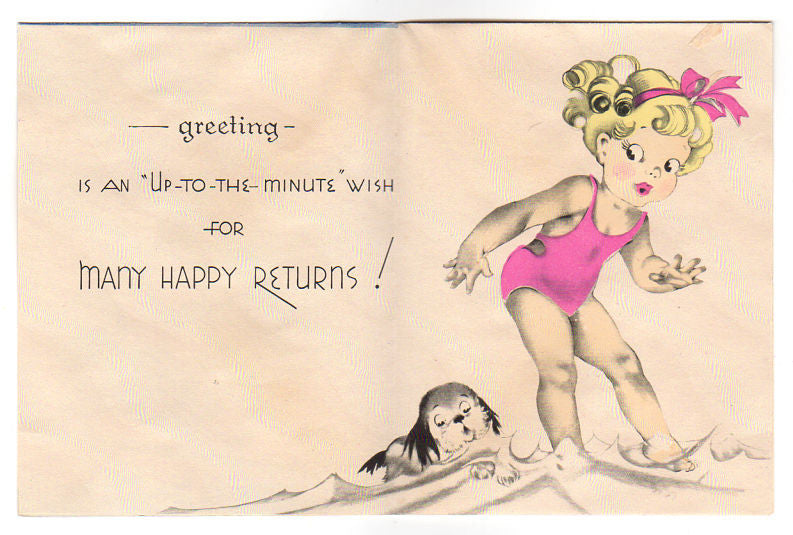 — greeting –
IS AN "UP-TO-THE-MINUTE" WISH
FOR
MANY HAPPY RETURNS!